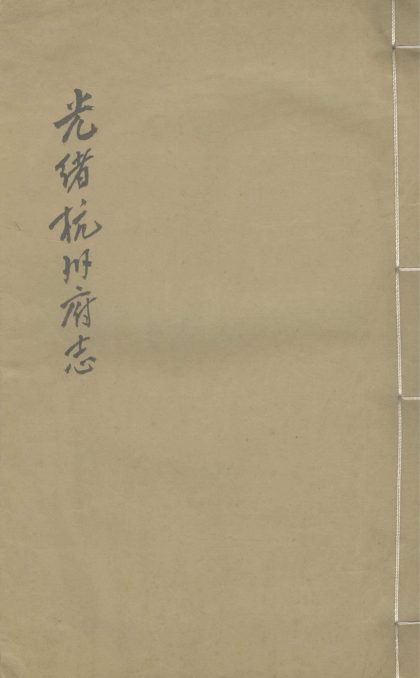 光绪杭州府志